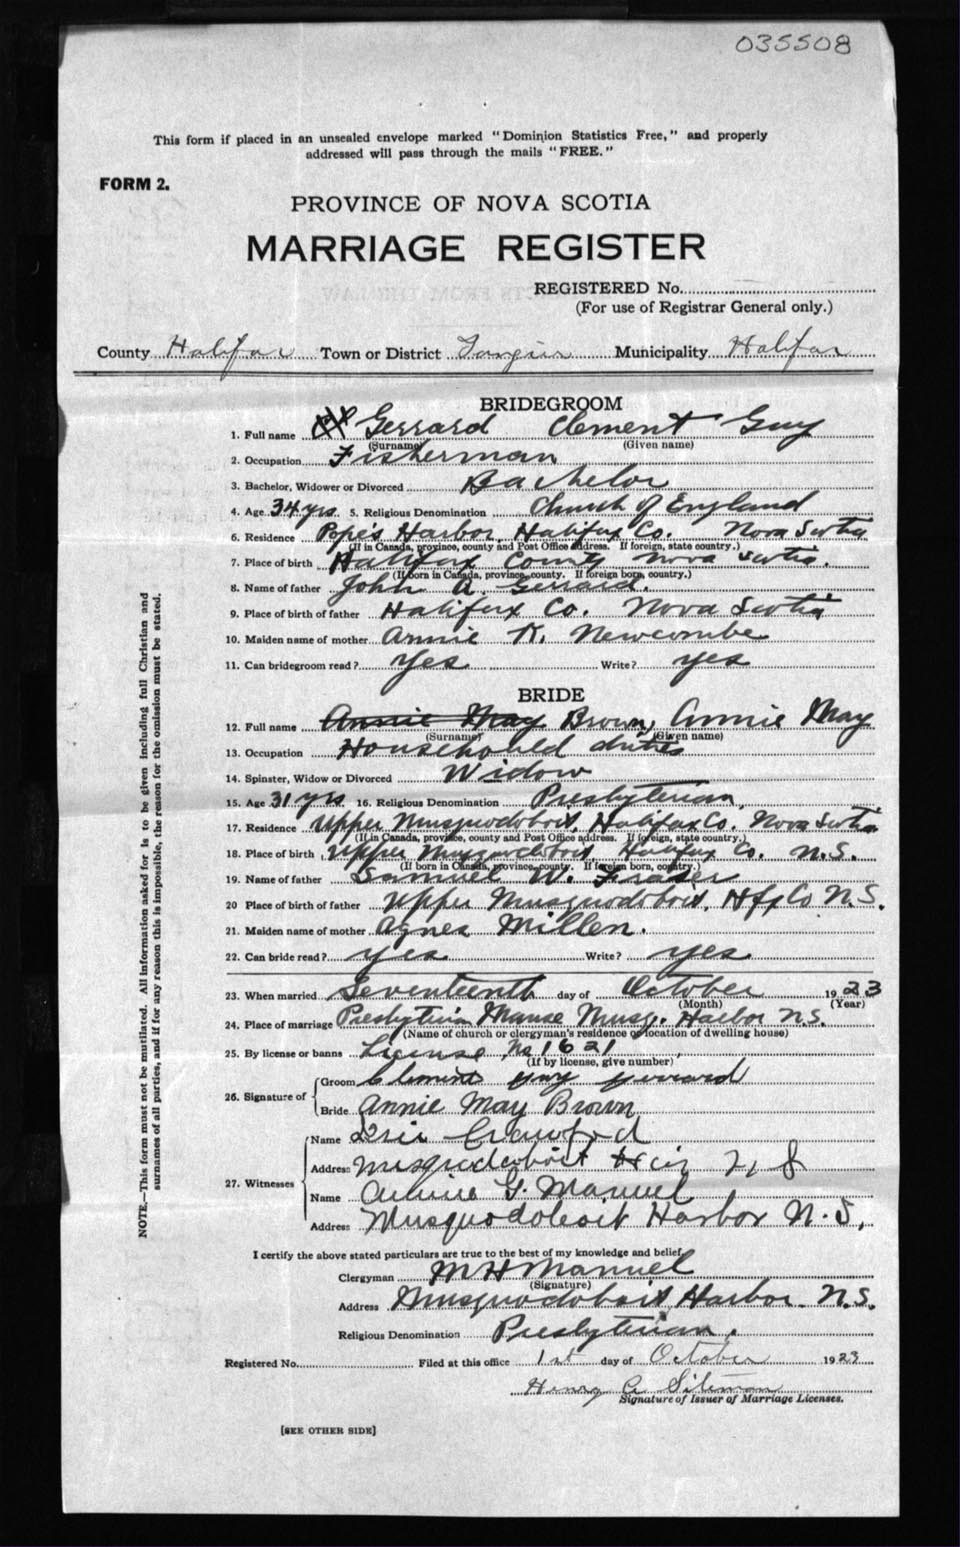 035508
This form if placed in an unsealed envelope marked "Dominion Statistics Free," and properly
addressed will pass through the mails "FREE."
FORM 2.
PROVINCE OF NOVA SCOTIA
MARRIAGE REGISTER
REGISTERED No.
(For use of Registrar General only.)
County Halifax Town or District Tangier Municipality Halifax
BRIDEGROOM
1. Full name Gerrard Clement Guy
(Surname) (Given name)
2. Occupation Fisherman
3. Bachelor, Widower or Divorced Bachelor
4. Age 34 yrs. 5. Religious Denomination Church of England
6. Residence Pope's Harbor, Halifax Co. Nova Scotia
(If in Canada, province, county and Post Office address. If foreign, state country.)
7. Place of birth Halifax County Nova Scotia.
(If born in Canada, province, county. If foreign born, country.)
8. Name of father John A. Gerrard.
9. Place of birth of father Halifax Co. Nova Scotia
10. Maiden name of mother Annie K. Newcombe
11. Can bridegroom read? Yes Write? yes
BRIDE
12. Full name Annie May Brown, Annie May
(Surname) (Given name)
13. Occupation Household duties
14. Spinster, Widow or Divorced Widow
15. Age 31 yrs 16. Religious Denomination Presbyterian
17. Residence Upper Musquodoboit, Halifax Co. Nova Scotia
(If in Canada, province, county and Post Office address. If foreign, state country.)
18. Place of birth Upper Musquodoboit, Halifax Co. N.S.
(If born in Canada, province, county. If foreign born, country.)
19. Name of father Samuel W. Fraser
20 Place of birth of father Upper Musquodoboit, Hfx Co N.S.
21. Maiden name of mother Agnes Millen.
22. Can bride read? yes Write? yes
23. When married Seventeenth day of October 1923
(Month) (Year)
24. Place of marriage Presbyterian Manse Musq. Harbor N.S.
(Name of church or clergyman's residence or location of dwelling house)
25. By license or banns License No 1621
(If by license, give number)
26. Signature of
Groom Clement Guy Gerrard
Bride Annie May Brown
27. Witnesses
Name Crawford
Address Musquodoboit N S
Name G. Manuel
Address Musquodoboit Harbor N.S.
I certify the above stated particulars are true to the best of my knowledge and belief.
Clergyman M H Manuel
(Signature)
Address Musquodoboit Harbor N.S.
Religious Denomination Presbyterian.
Registered No. Filed at this office 1st day of October 1923
Henry A Siteman
Signature of Issuer of Marriage Licenses.
[SEE OTHER SIDE]
NOTE.—This form must not be mutilated. All information asked for is to be given including full Christian and
surnames of all parties, and if for any reason this is impossible, the reason for the omission must be stated.